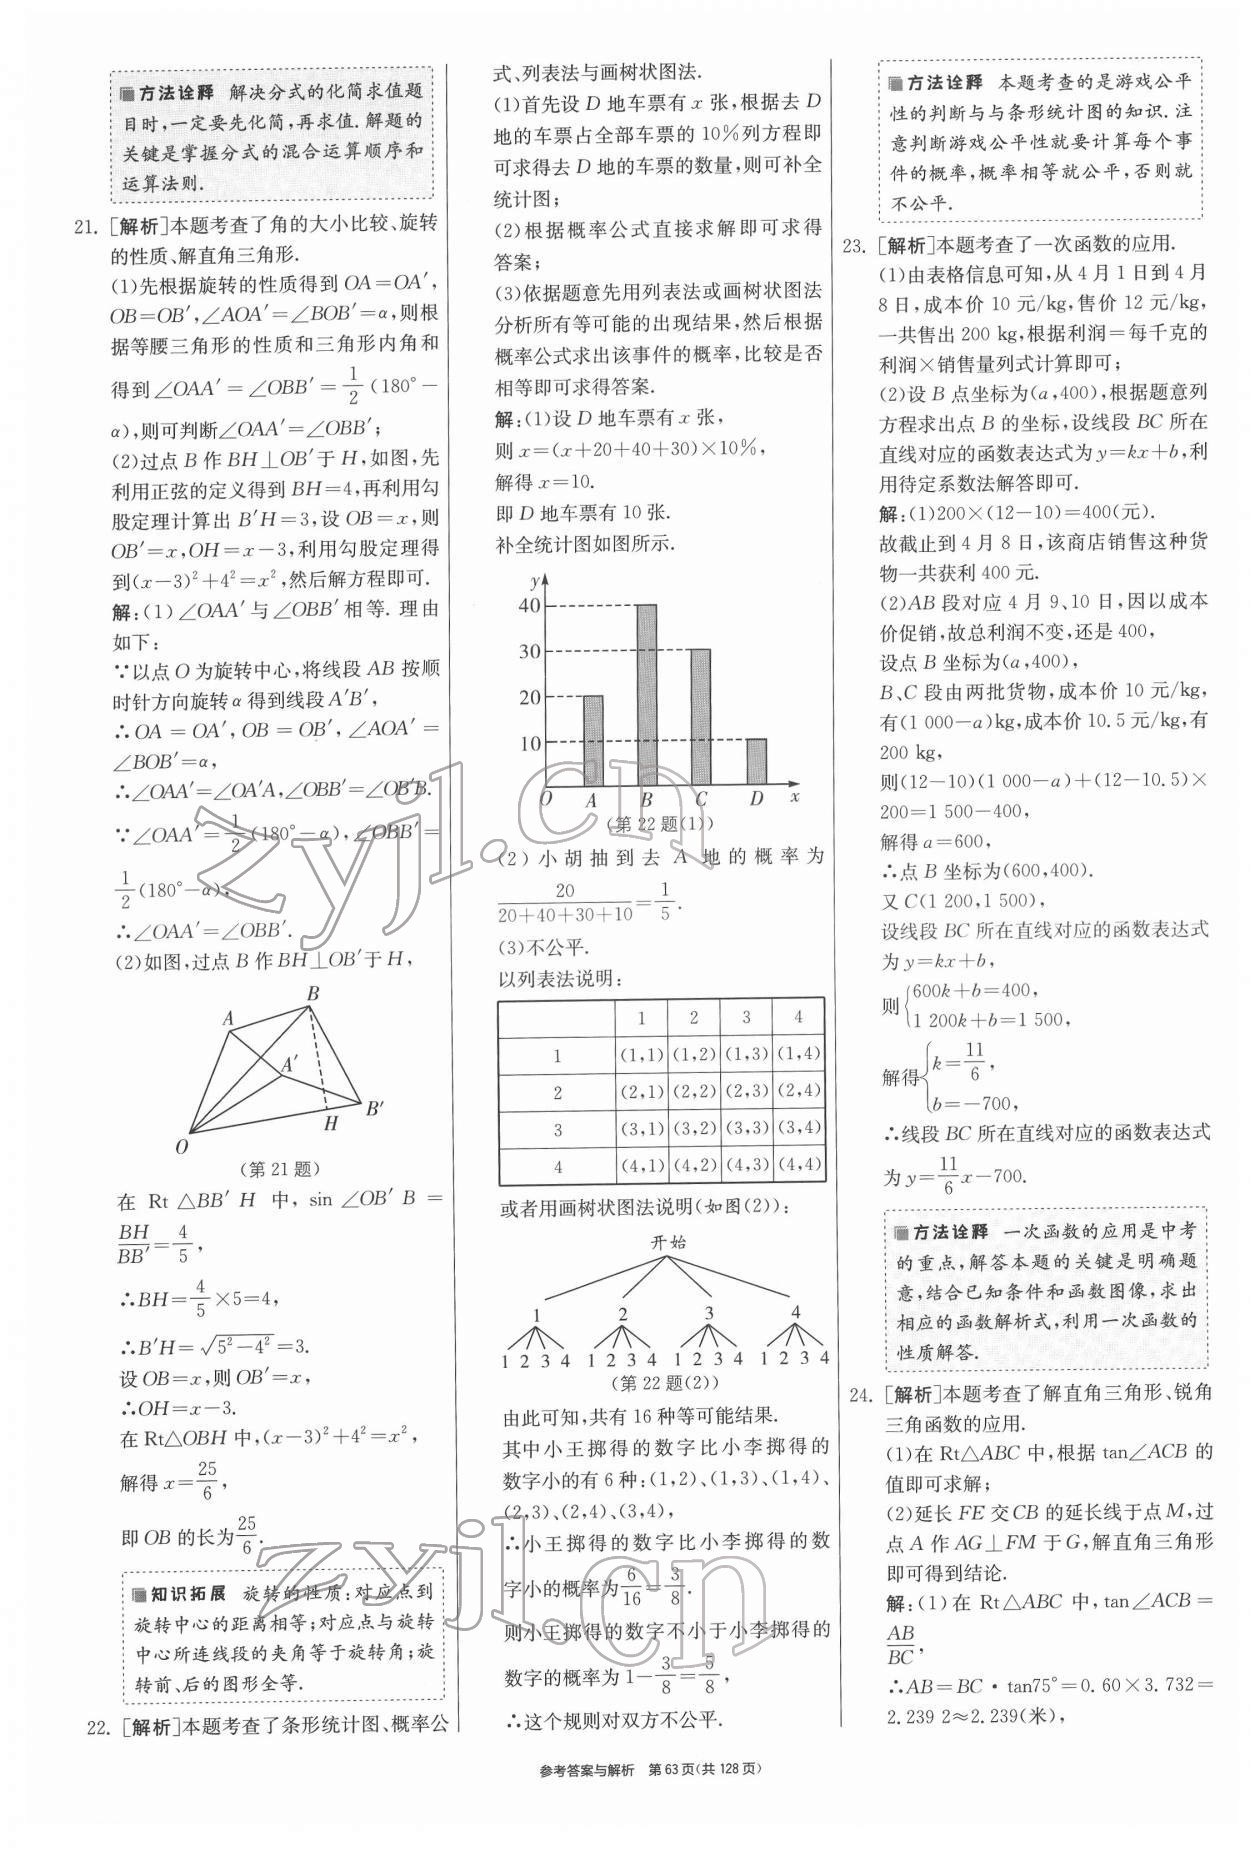 方法诠释 解决分式的化简求值题
目时,一定要先化简,再求值.解题的
关键是掌握分式的混合运算顺序和
运算法则.
21. [解析]本题考查了角的大小比较、旋转
的性质、解直角三角形.
(1)先根据旋转的性质得到OA=OA′,
OB=OB′,∠AOA′=∠BOB′=α,则根
据等腰三角形的性质和三角形内角和
得到∠OAA′=∠OBB′=1/2(180°-
α),则可判断∠OAA′=∠OBB′;
(2)过点B作BH⊥OB′于H,如图,先
利用正弦的定义得到BH=4,再利用勾
股定理计算出B′H=3,设OB=x,则
OB′=x,OH=x-3,利用勾股定理得
到(x-3)²+4²=x²,然后解方程即可.
解:(1)∠OAA′与∠OBB′相等.理由
如下:
∵以点O为旋转中心,将线段AB按顺
时针方向旋转α得到线段A′B′,
∴OA=OA′,OB=OB′,∠AOA′=
∠BOB′=α,
∴∠OAA′=∠OA′A,∠OBB′=∠OB′B.
∵∠OAA′=1/2(180°-α),∠OBB′=
1/2(180°-α),
∴∠OAA′=∠OBB′.
(2)如图,过点B作BH⊥OB′于H,
B
A
A′
B′
H
O
(第21题)
在Rt△BB′H中,sin∠OB′B=
BH/BB′=4/5,
∴BH=4/5×5=4,
∴B′H=√(5²-4²)=3.
设OB=x,则OB′=x,
∴OH=x-3.
在Rt△OBH中,(x-3)²+4²=x²,
解得x=25/6,
即OB的长为25/6.
知识拓展 旋转的性质:对应点到
旋转中心的距离相等;对应点与旋转
中心所连线段的夹角等于旋转角;旋
转前、后的图形全等.
22. [解析]本题考查了条形统计图、概率公
式、列表法与画树状图法.
(1)首先设D地车票有x张,根据去D
地的车票占全部车票的10%列方程即
可求得去D地的车票的数量,则可补全
统计图;
(2)根据概率公式直接求解即可求得
答案;
(3)依据题意先用列表法或画树状图法
分析所有等可能的出现结果,然后根据
概率公式求出该事件的概率,比较是否
相等即可求得答案.
解:(1)设D地车票有x张,
则x=(x+20+40+30)×10%,
解得x=10.
即D地车票有10张.
补全统计图如图所示.
y
40
30
20
10
O A B C D x
(第22题(1))
(2)小胡抽到去A地的概率为
20/(20+40+30+10)=1/5.
(3)不公平.
以列表法说明:
1 2 3 4
1 (1,1) (1,2) (1,3) (1,4)
2 (2,1) (2,2) (2,3) (2,4)
3 (3,1) (3,2) (3,3) (3,4)
4 (4,1) (4,2) (4,3) (4,4)
或者用画树状图法说明(如图(2)):
开始
1 2 3 4
1 2 3 4 1 2 3 4 1 2 3 4 1 2 3 4
(第22题(2))
由此可知,共有16种等可能结果.
其中小王掷得的数字比小李掷得的
数字小的有6种:(1,2)、(1,3)、(1,4)、
(2,3)、(2,4)、(3,4),
∴小王掷得的数字比小李掷得的数
字小的概率为6/16=3/8.
则小王掷得的数字不小于小李掷得的
数字的概率为1-3/8=5/8,
∴这个规则对双方不公平.
方法诠释 本题考查的是游戏公平
性的判断与与条形统计图的知识.注
意判断游戏公平性就要计算每个事
件的概率,概率相等就公平,否则就
不公平.
23. [解析]本题考查了一次函数的应用.
(1)由表格信息可知,从4月1日到4月
8日,成本价10元/kg,售价12元/kg,
一共售出200 kg,根据利润=每千克的
利润×销售量列式计算即可;
(2)设B点坐标为(a,400),根据题意列
方程求出点B的坐标,设线段BC所在
直线对应的函数表达式为y=kx+b,利
用待定系数法解答即可.
解:(1)200×(12-10)=400(元).
故截止到4月8日,该商店销售这种货
物一共获利400元.
(2)AB段对应4月9、10日,因以成本
价促销,故总利润不变,还是400,
设点B坐标为(a,400),
B、C段由两批货物,成本价10元/kg,
有(1 000-a)kg,成本价10.5元/kg,有
200 kg,
则(12-10)(1 000-a)+(12-10.5)×
200=1 500-400,
解得a=600,
∴点B坐标为(600,400).
又C(1 200,1 500),
设线段BC所在直线对应的函数表达式
为y=kx+b,
则{600k+b=400,
1 200k+b=1 500,
解得{k=11/6,
b=-700,
∴线段BC所在直线对应的函数表达式
为y=11/6x-700.
方法诠释 一次函数的应用是中考
的重点,解答本题的关键是明确题
意,结合已知条件和函数图像,求出
相应的函数解析式,利用一次函数的
性质解答.
24. [解析]本题考查了解直角三角形、锐角
三角函数的应用.
(1)在Rt△ABC中,根据tan∠ACB的
值即可求解;
(2)延长FE交CB的延长线于点M,过
点A作AG⊥FM于G,解直角三角形
即可得到结论.
解:(1)在Rt△ABC中,tan∠ACB=
AB/BC,
∴AB=BC·tan75°=0.60×3.732=
2.239 2≈2.239(米),
参考答案与解析 第63页(共128页)
zyjl.cn
zyjl.cn